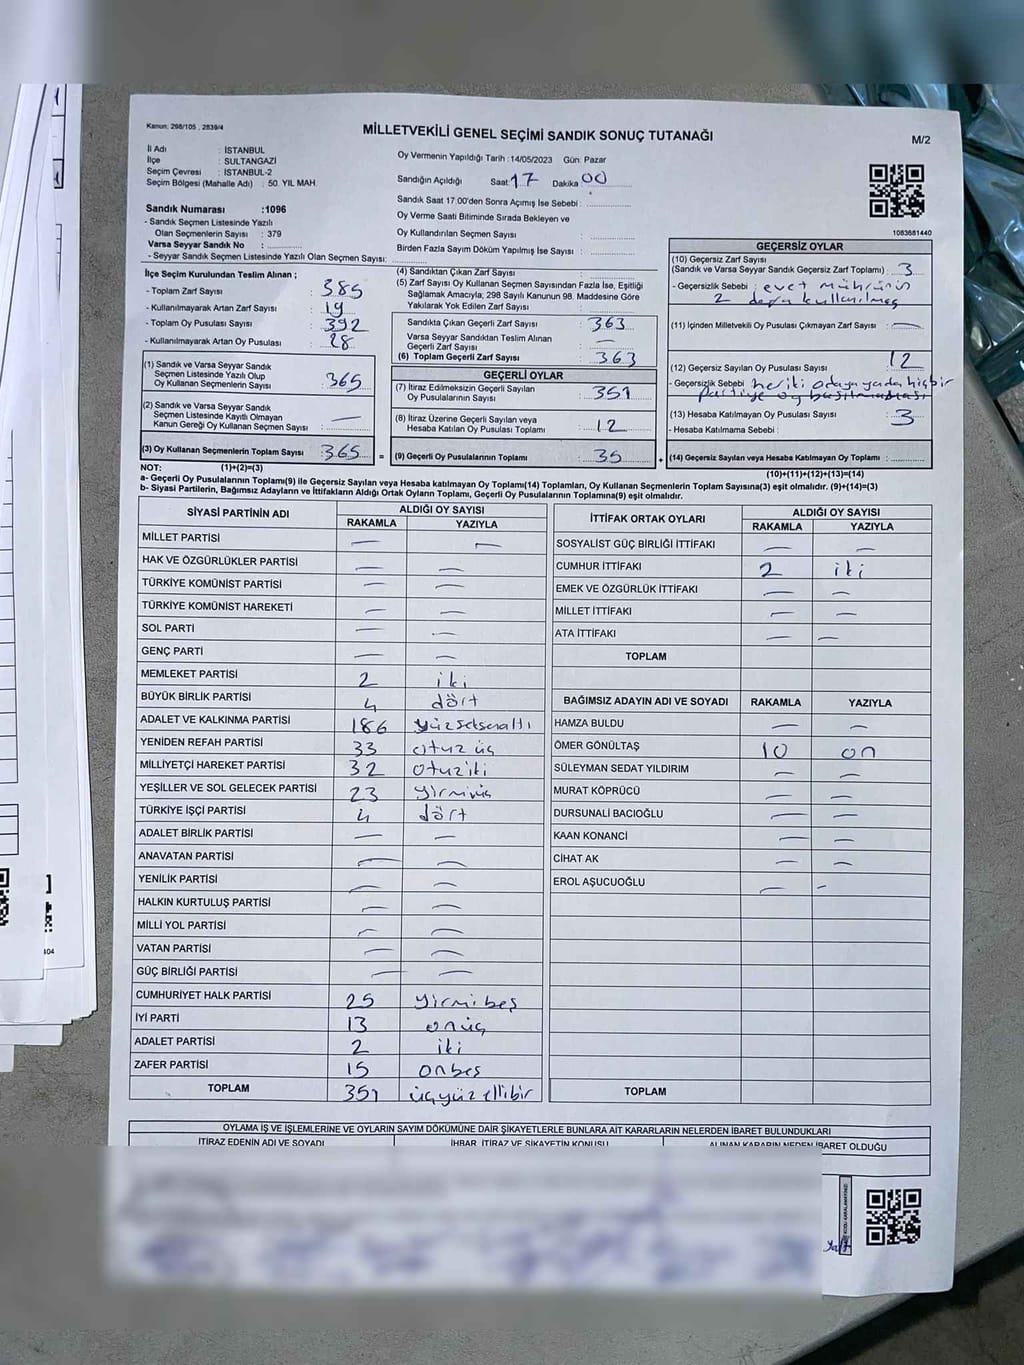 Kanun: 298/105 , 2839/4
MİLLETVEKİLİ GENEL SEÇİMİ SANDIK SONUÇ TUTANAĞI
M/2
İl Adı : İSTANBUL
İlçe : SULTANGAZİ
Seçim Çevresi : İSTANBUL-2
Seçim Bölgesi (Mahalle Adı) : 50. YIL MAH.
Oy Vermenin Yapıldığı Tarih :14/05/2023 Gün: Pazar
Sandığın Açıldığı Saat 17 Dakika 00
Sandık Saat 17.00'den Sonra Açımış İse Sebebi :
Oy Verme Saati Bitiminde Sırada Bekleyen ve
Oy Kullandırılan Seçmen Sayısı :
Birden Fazla Sayım Döküm Yapılmış İse Sayısı :
1083681440
Sandık Numarası :1096
- Sandık Seçmen Listesinde Yazılı
Olan Seçmenlerin Sayısı : 379
Varsa Seyyar Sandık No :
- Seyyar Sandık Seçmen Listesinde Yazılı Olan Seçmen Sayısı:
İlçe Seçim Kurulundan Teslim Alınan ;
- Toplam Zarf Sayısı : 385
- Kullanılmayarak Artan Zarf Sayısı : 19
- Toplam Oy Pusulası Sayısı : 392
- Kullanılmayarak Artan Oy Pusulası : 28
(1) Sandık ve Varsa Seyyar Sandık
Seçmen Listesinde Yazılı Olup
Oy Kullanan Seçmenlerin Sayısı : 365
(2) Sandık ve Varsa Seyyar Sandık
Seçmen Listesinde Kayıtlı Olmayan
Kanun Gereği Oy Kullanan Seçmen Sayısı : —
(3) Oy Kullanan Seçmenlerin Toplam Sayısı : 365 =
(4) Sandıktan Çıkan Zarf Sayısı :
(5) Zarf Sayısı Oy Kullanan Seçmen Sayısından Fazla İse, Eşitliği
Sağlamak Amacıyla, 298 Sayılı Kanunun 98. Maddesine Göre
Yakılarak Yok Edilen Zarf Sayısı :
Sandıkta Çıkan Geçerli Zarf Sayısı : 363
Varsa Seyyar Sandıktan Teslim Alınan
Geçerli Zarf Sayısı : —
(6) Toplam Geçerli Zarf Sayısı : 363
GEÇERLİ OYLAR
(7) İtiraz Edilmeksizin Geçerli Sayılan
Oy Pusulalarının Sayısı : 351
(8) İtiraz Üzerine Geçerli Sayılan veya
Hesaba Katılan Oy Pusulası Toplamı : 12
(9) Geçerli Oy Pusulalarının Toplamı : 35 +
GEÇERSİZ OYLAR
(10) Geçersiz Zarf Sayısı
(Sandık ve Varsa Seyyar Sandık Geçersiz Zarf Toplamı) : 3
- Geçersizlik Sebebi : evet mührünün
2 defa kullanılmış
(11) İçinden Milletvekili Oy Pusulası Çıkmayan Zarf Sayısı : —
(12) Geçersiz Sayılan Oy Pusulası Sayısı : 12
- Geçersizlik Sebebi
partiye oy basılmaması
(13) Hesaba Katılmayan Oy Pusulası Sayısı : 3
- Hesaba Katılmama Sebebi :
(14) Geçersiz Sayılan veya Hesaba Katılmayan Oy Toplamı :
NOT: (1)+(2)=(3) (10)+(11)+(12)+(13)=(14)
a- Geçerli Oy Pusulalarının Toplamı(9) ile Geçersiz Sayılan veya Hesaba katılmayan Oy Toplamı(14) Toplamları, Oy Kullanan Seçmenlerin Toplam Sayısına(3) eşit olmalıdır. (9)+(14)=(3)
b- Siyasi Partilerin, Bağımsız Adayların ve İttifakların Aldığı Ortak Oyların Toplamı, Geçerli Oy Pusulalarının Toplamına(9) eşit olmalıdır.
SİYASİ PARTİNİN ADI ALDIĞI OY SAYISI
RAKAMLA YAZIYLA
MİLLET PARTİSİ — —
HAK VE ÖZGÜRLÜKLER PARTİSİ — —
TÜRKİYE KOMÜNİST PARTİSİ — —
TÜRKİYE KOMÜNİST HAREKETİ — —
SOL PARTİ — —
GENÇ PARTİ — —
MEMLEKET PARTİSİ 2 iki
BÜYÜK BİRLİK PARTİSİ 4 dört
ADALET VE KALKINMA PARTİSİ 186 yüzseksenaltı
YENİDEN REFAH PARTİSİ 33 otuz üç
MİLLİYETÇİ HAREKET PARTİSİ 32 otuziki
YEŞİLLER VE SOL GELECEK PARTİSİ 23 yirmiüç
TÜRKİYE İŞÇİ PARTİSİ 4 dört
ADALET BİRLİK PARTİSİ — —
ANAVATAN PARTİSİ — —
YENİLİK PARTİSİ — —
HALKIN KURTULUŞ PARTİSİ — —
MİLLİ YOL PARTİSİ — —
VATAN PARTİSİ — —
GÜÇ BİRLİĞİ PARTİSİ — —
CUMHURİYET HALK PARTİSİ 25 yirmibeş
İYİ PARTİ 13 onüç
ADALET PARTİSİ 2 iki
ZAFER PARTİSİ 15 onbeş
TOPLAM 351 üçyüzellibir
İTTİFAK ORTAK OYLARI ALDIĞI OY SAYISI
RAKAMLA YAZIYLA
SOSYALİST GÜÇ BİRLİĞİ İTTİFAKI — —
CUMHUR İTTİFAKI 2 iki
EMEK VE ÖZGÜRLÜK İTTİFAKI — —
MİLLET İTTİFAKI — —
ATA İTTİFAKI — —
TOPLAM
BAĞIMSIZ ADAYIN ADI VE SOYADI RAKAMLA YAZIYLA
HAMZA BULDU — —
ÖMER GÖNÜLTAŞ 10 on
SÜLEYMAN SEDAT YILDIRIM — —
MURAT KÖPRÜCÜ — —
DURSUNALİ BACIOĞLU — —
KAAN KONANCİ — —
CİHAT AK — —
EROL AŞUCUOĞLU — —
TOPLAM
OYLAMA İŞ VE İŞLEMLERİNE VE OYLARIN SAYIM DÖKÜMÜNE DAİR ŞİKAYETLERLE BUNLARA AİT KARARLARIN NELERDEN İBARET BULUNDUKLARI
İTİRAZ EDENİN ADI VE SOYADI İHBAR, İTİRAZ VE ŞİKAYETİN KONUSU ALINAN KARARIN NEDEN İBARET OLDUĞU